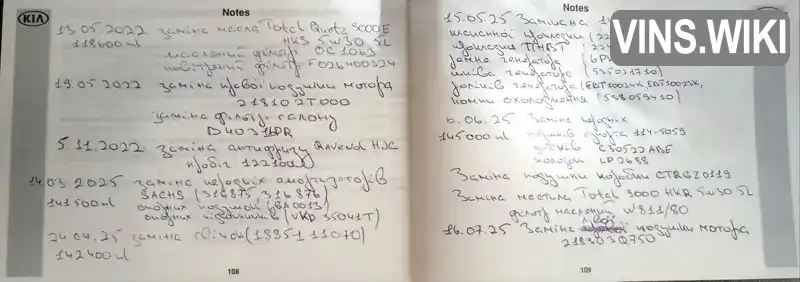 KIA
Notes
13.05.2022 заміна масла Total Qurtz 9000E
118600 км HKS 5w30 5L
масляний фільтр OC 1063
повітряний фільтр F026400324
19.05.2022 заміна правої подушки мотора
218102T000
заміна фільтр салону
B4031PR
5.11.2022 заміна антифризу Ravenol HJC
пробіг 122100
14.03.2025 заміна передніх амортизаторів
141500 км SACHS (316875, 316876)
опорних подушок
опорних підшипників (VKD 35041T)
24.04.25 заміна свічок (18851 11070)
142400 км
108
Notes
15.05.25 Замінана
прокладка ТНВД
ролік генератора (5350217
ролиців генератора (EDT10024K, EDT10023K,
помпи охолодження (538059410)
6.06.25 Заміна
145000 км 114-5059
C30522ABE
колодки LP2688
Заміна подушки коробки CTRGZ0119
Заміна мастила Total 9000 HKR 5w30 5L
фільтр масляний W811/80
16.07.25 Заміна лівої подушки мотора
218303Q750
109
VINS.WIKI